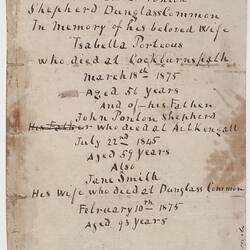 Shepherd Dunglass Common
In Memory of his beloved Wife
Isabella Porteous
who died at Cockburnspath
march 18th 1875
Aged 56 years
And of his Father
John Ponlon Shepherd
who died at Aithengall
July 22nd 1845
Aged 59 years
Also
Jane Smith
His Wife who died at Dunglass Common
February 10th 1875
Aged 93 years